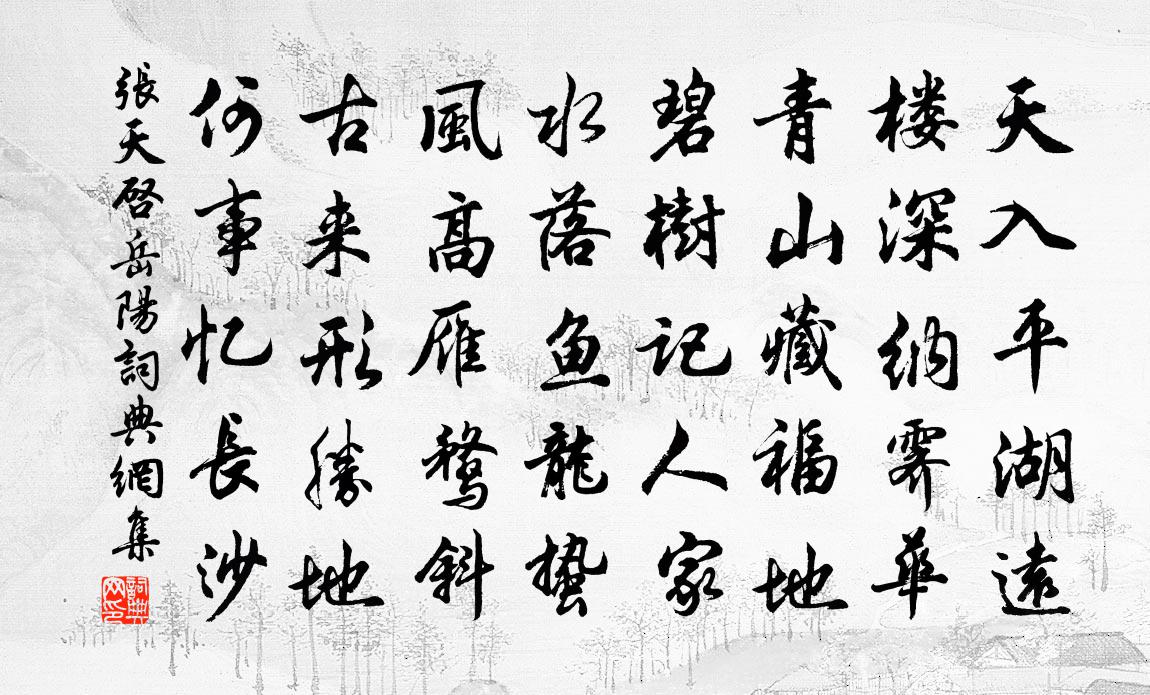 天入平湖遠
楼深纳霁華
青山藏福地
碧樹记人家
水落鱼龍蛰
風高雁鹜斜
古来形勝地
何事忆長沙
張天啓岳陽詞典網集